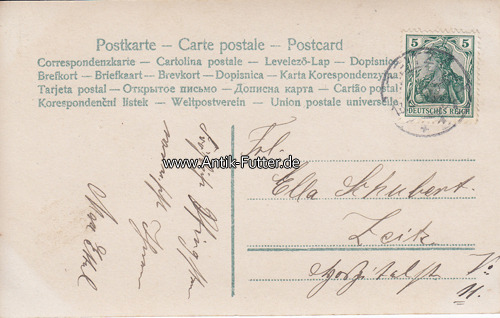 Postkarte – Carte postale – Postcard
Correspondenzkarte – Cartolina postale – Levelező-Lap – Dopisnice
Brefkort – Briefkaart – Brevkort – Dopisnica – Karta Korespondenzyjna
Tarjeta postal – Открытое письмо – Дописна карта – Cartão postal
Korespondenční listek – Weltpostverein – Union postale universelle
5 5
DEUTSCHES REICH
www.Antik-Futter.de
Frl.
Ella Schubert.
Zeitz
Hospitalstr.
11.
wünscht Ihnen
Max